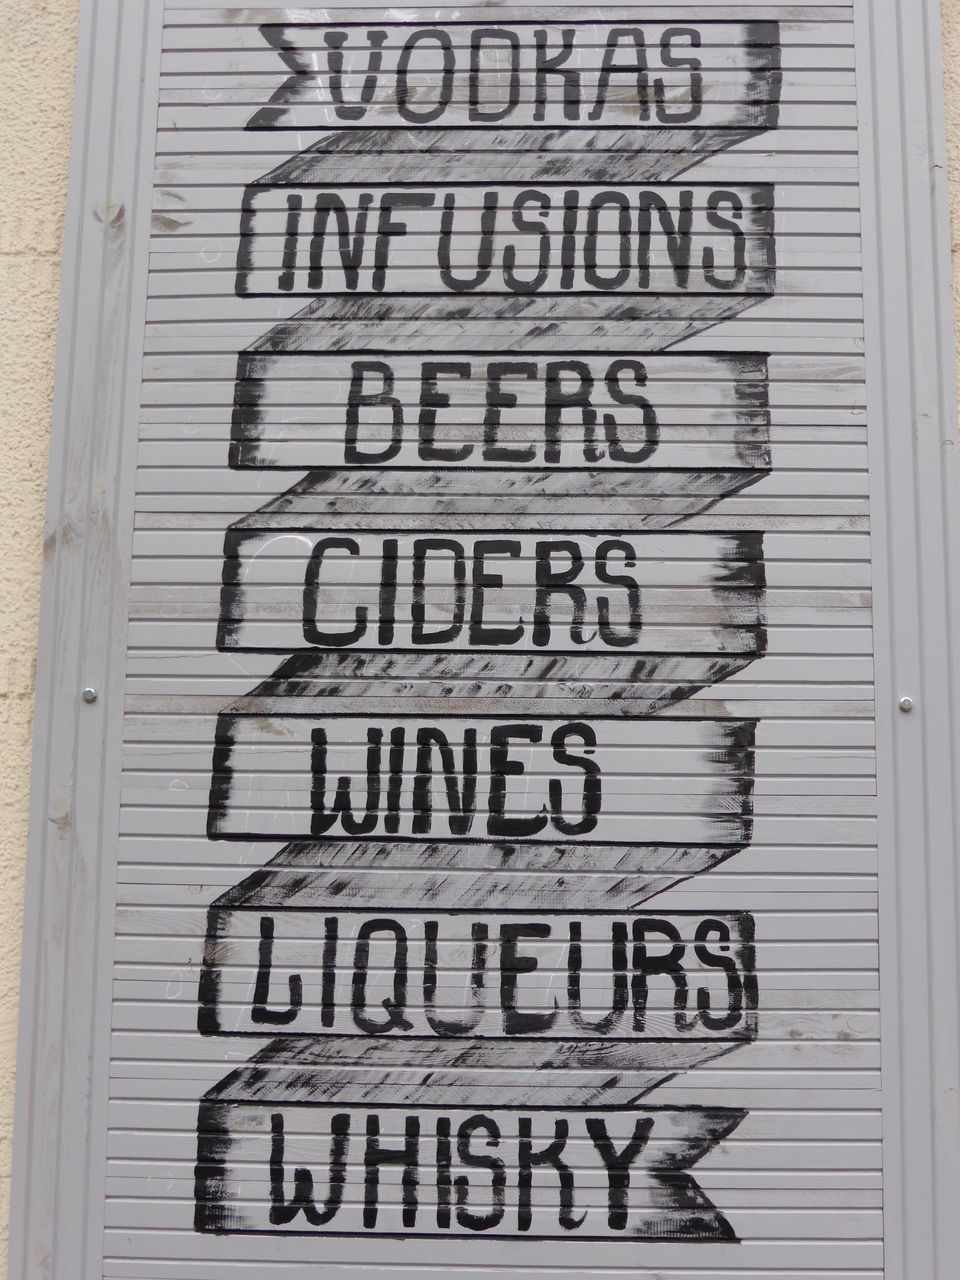 VODKAS
INFUSIONS
BEERS
CIDERS
WINES
LIQUEURS
WHISKY